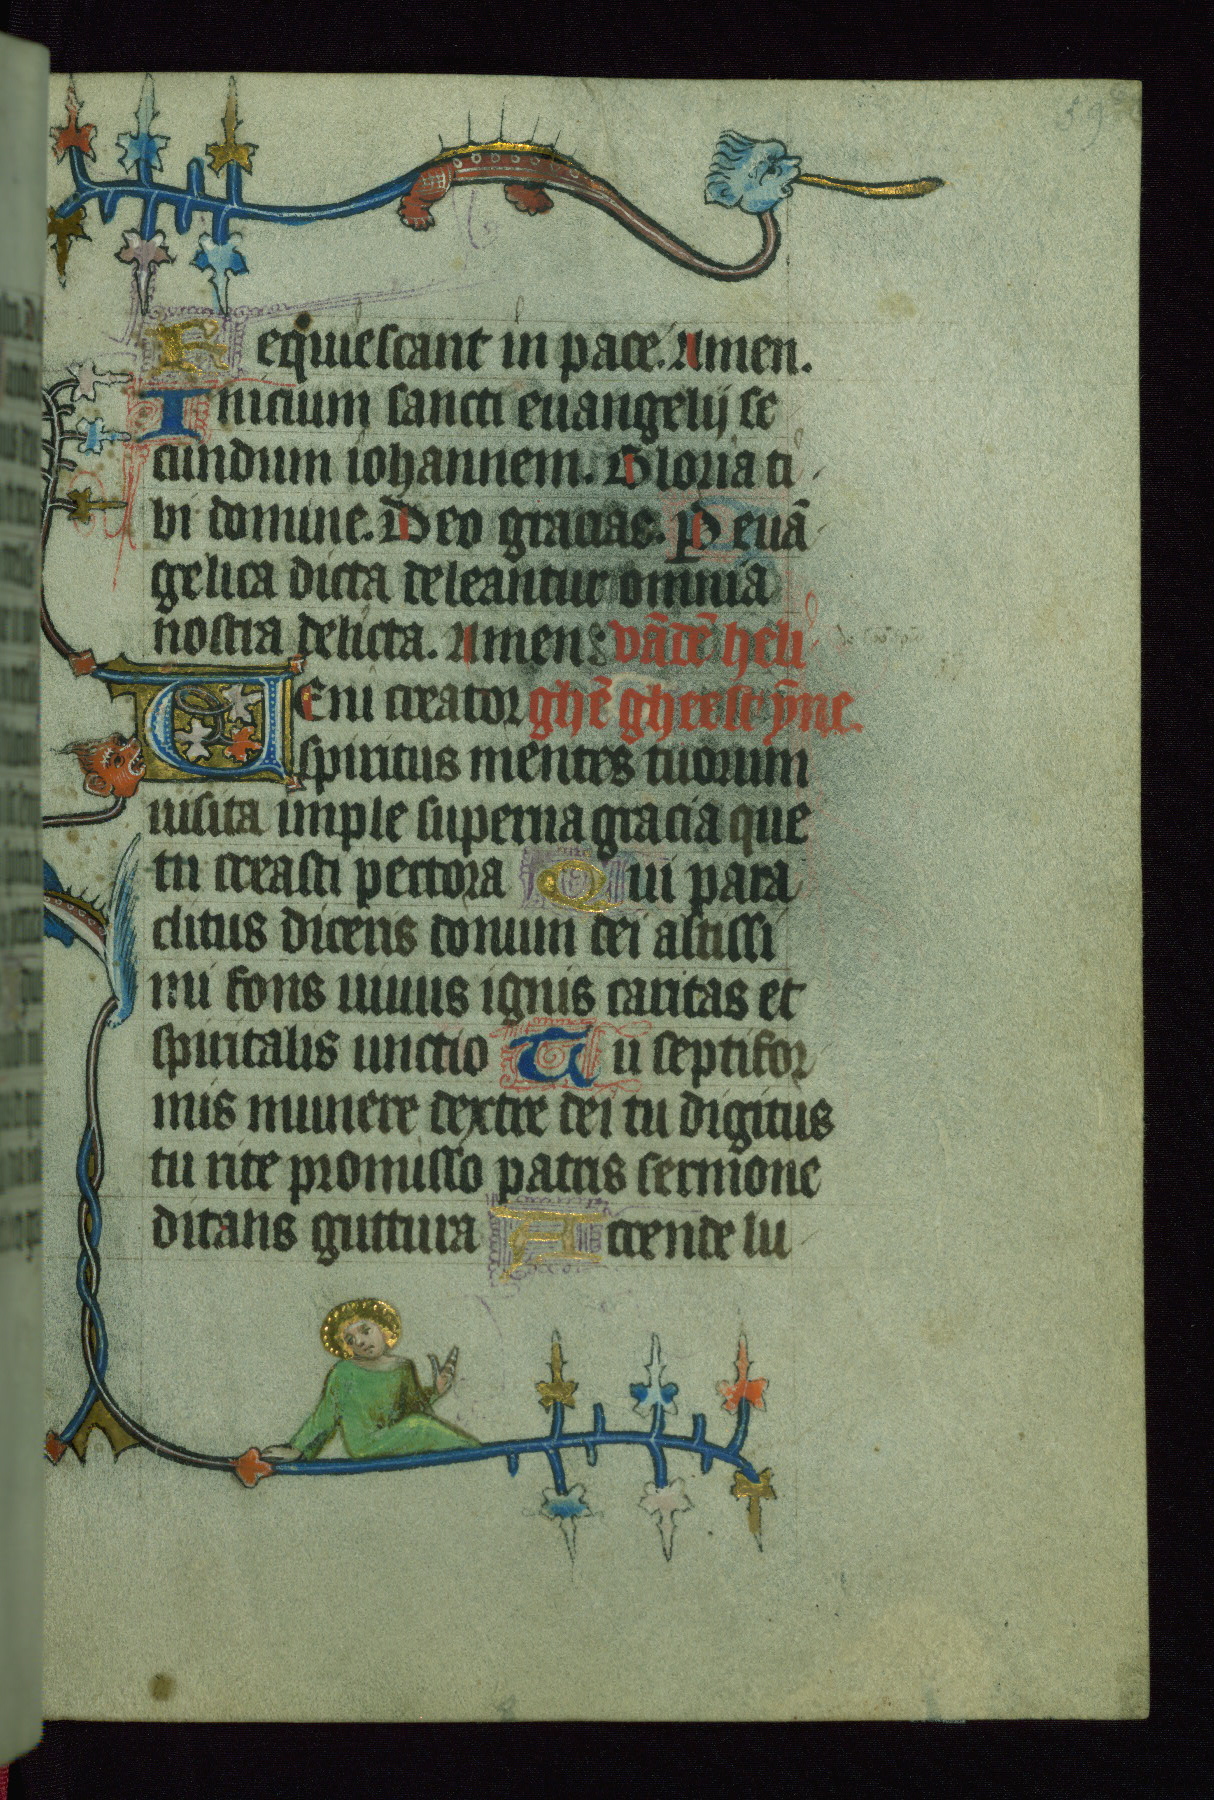 59
Requiescant in pace. Amen.
Inicium sancti euangelij se
cundum iohannem. Gloria ti
bi domine. Deo gracias. P euā
gelica dicta deleantur omnia
nostra delicta. Amen: vādē heli
UEni creator ghē gheeste ȳne.
spiritus mentes tuorum
uisita imple superna gracia que
tu creasti pectora Qui para
clitus diceris donum dei altissi
mi fons uiuus ignis caritas et
spiritalis unctio Tu septifor
mis munere dextre dei tu digitus
tu rite promisso patris sermone
ditans guttura Accende lu